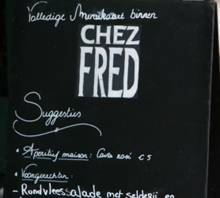 Volledige Menukaart binnen
CHEZ
FRED
Suggesties
• Aperitief maison: Cava rosé € 5
• Voorgerechten:
- Rundvleessalade met selderij en